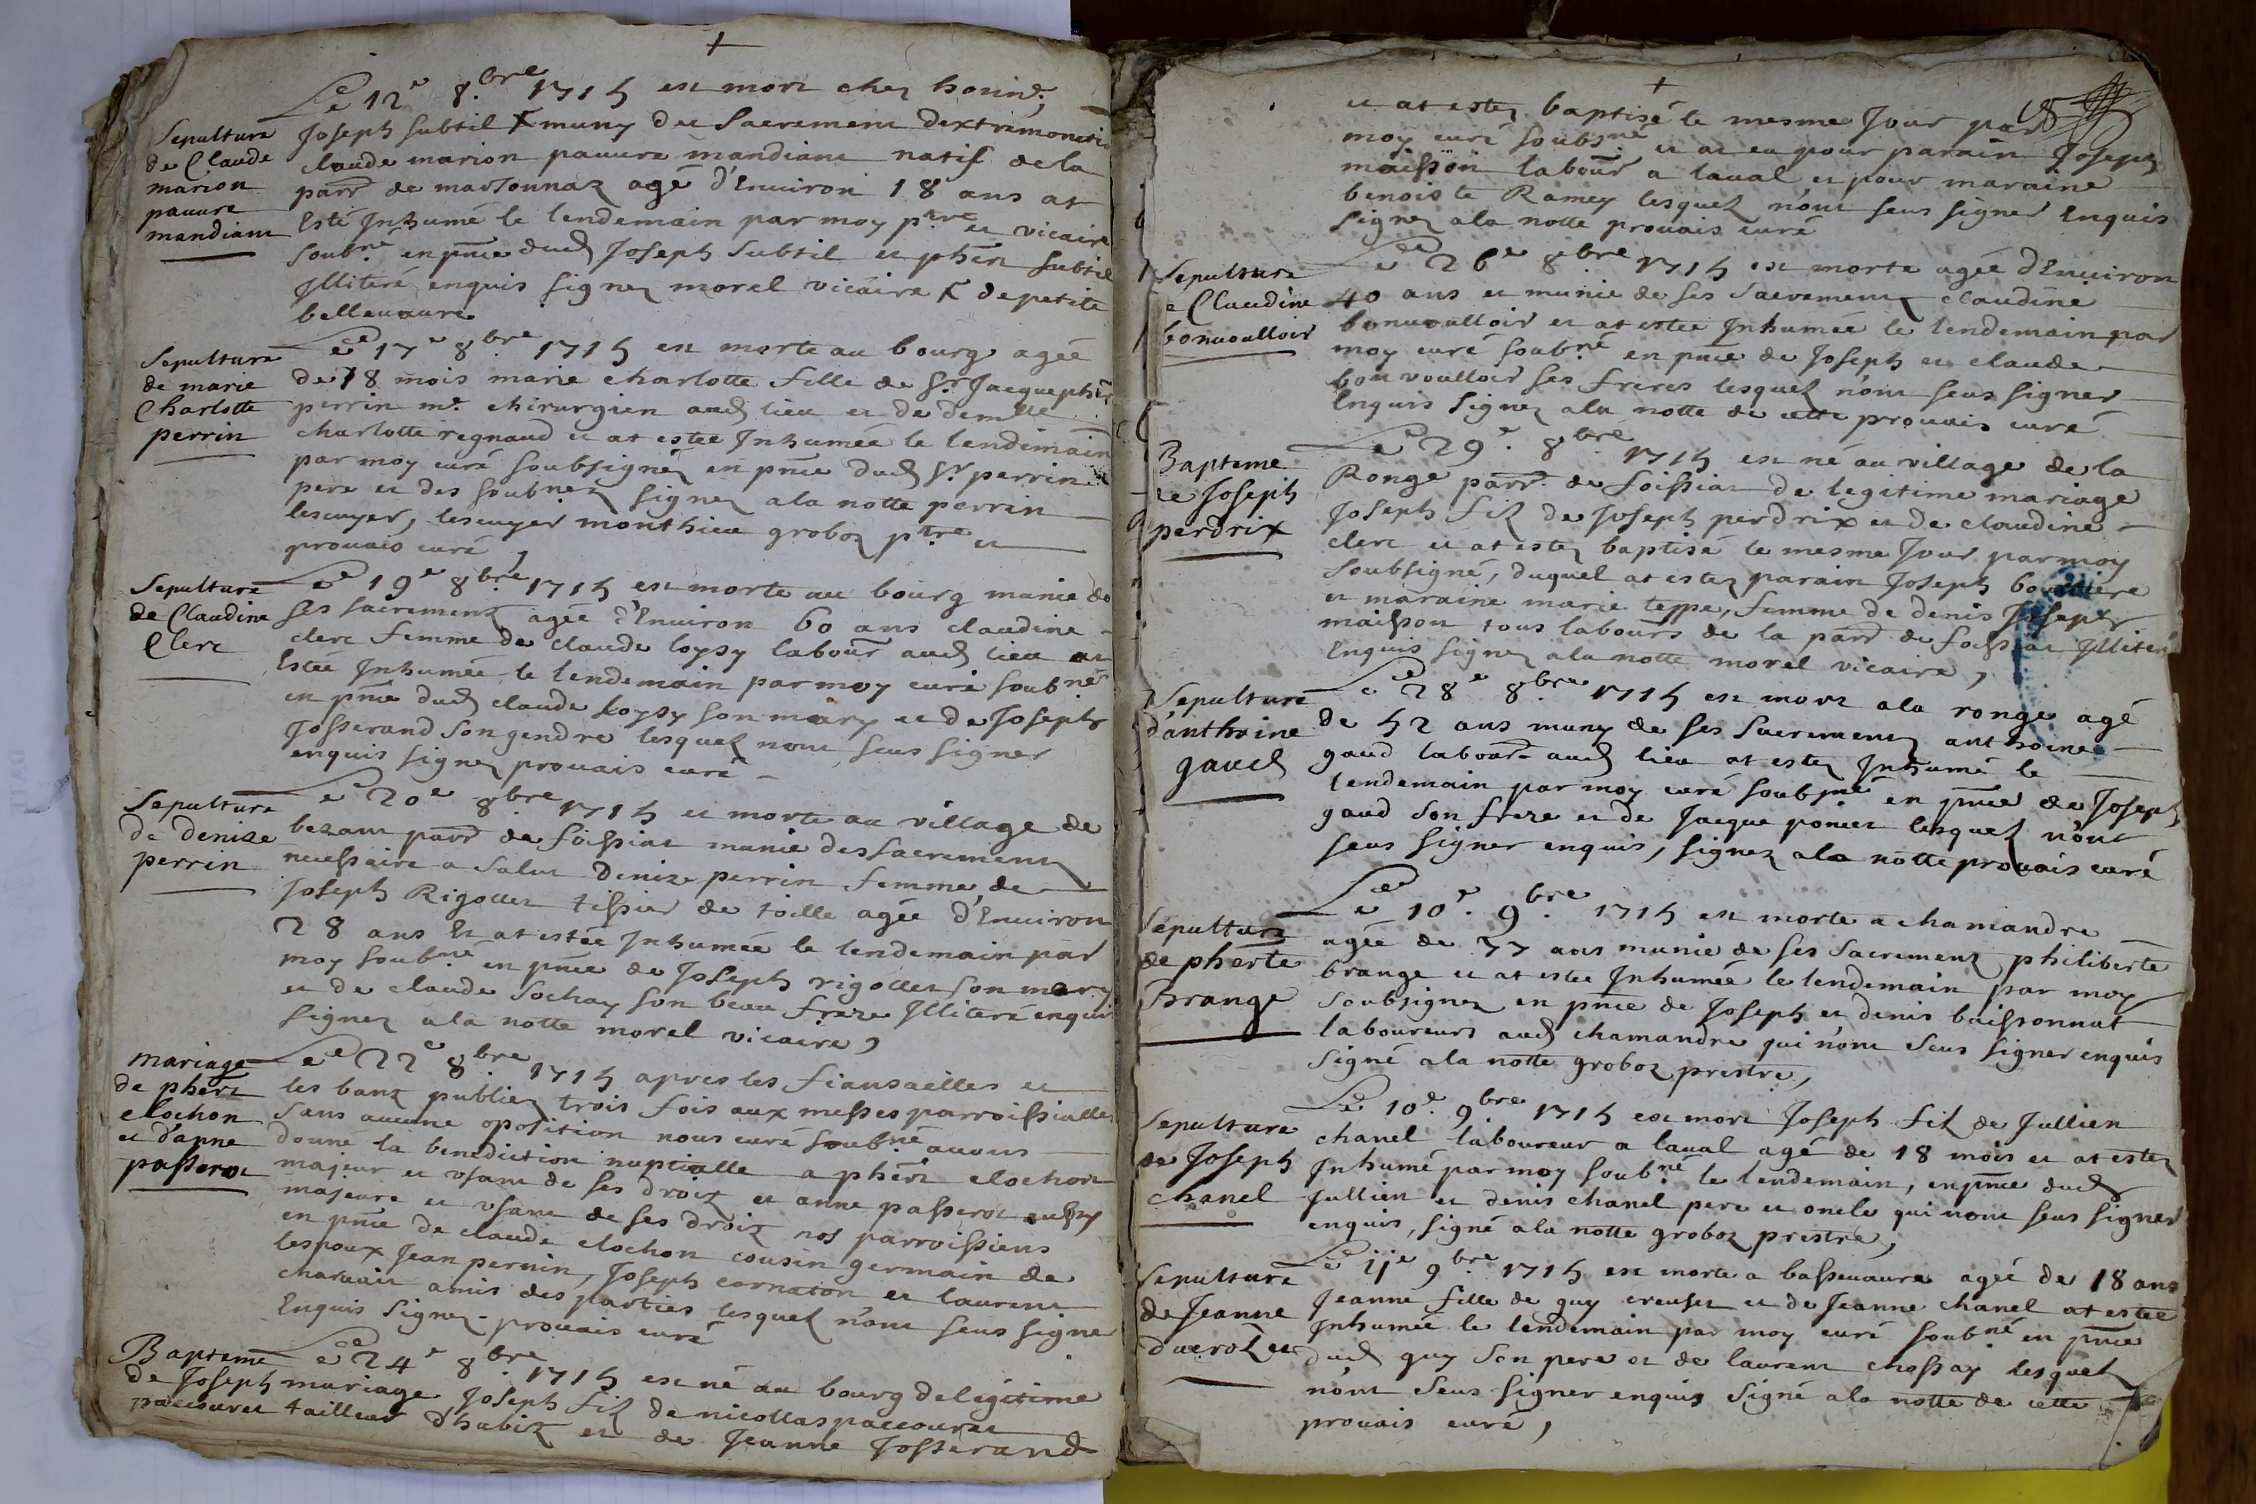 +
Sepulture
de Claude
marion
pauure
mandiant
Le 12e 8.bre 1715 est mort chez honnẽ
Joseph subtil x muny du Sacrement dextrémonction
claude marion pauure mandiant natif de la
parr de marsonnaz agé d'Enuiron 18 ans at
Esté Jnhumé le lendemain par moy ptre et vicaire
soub.né en pñce dud Joseph Subtil et phẽn subtil
Jlliteré enquis signez morel vicaire x de petite
belleuaure
Sepulture
de marie
Charlotte
perrin
Le 17e 8bre 1715 est morte au bourg agée
de 18 mois marie charlotte fille de Sr Jacque phẽn
perrin me. chirurgien aud lieu et de demlle
charlotte regnaud et at estée Jnhumée le lendemain
par moy curé soubsignéz en pñce dud Sr. perrin
pere et des soubnez signez a la notte perrin
lescuyer, lescuyer monthieu groboz ptre et
prouais curé,
Sepulture
de Claudine
Clerc
Le 19e 8bre 1715 est morte au bourg munie de
ses sacrementz agée d'Enuiron 60 ans claudine
clerc femme de claude loysy labour aud lieu at
Estée Jnhumée le lendemain par moy curé soubné
en pñce dud claude loysy son mary et de Joseph
Josserand son gendre lesquelz nont seus signer
enquis signez prouais curé
Sepulture
de denize
perrin
Le 20e 8bre 1715 et morte au village de
bezant parr de foissiat munie des sacrementz
necessaire a salut Denize perrin femme de
Joseph Rigollet tissier de toille agée d'Enuiron
28 ans Et at estée Jnhumée le lendemain par
moy soubné en pñce de Joseph rigollet son mary
et de claude Sochay son beau frere Jlliteré enquis
signez a la notte morel vicaire,
mariage
de phẽrt
clochon
et d'anne
passerat
Le 22e 8bre 1715 apres les fiansailles et
les banz publiez trois fois aux messes parroissialles
sans aucune oposition nous curé soubné auons
donné la benediction nuptialle a phẽrt clochon
majeur et vsant de ses droitz et anne passerat aussy
majeure et vsant de ses droitz nos parroissiens
en pñce de claude clochon cousin germain de
lespoux Jean pernin, Joseph cornaton et laurent
charuait amis des parties lesquelz n'ont seus signer
Enquis signez prouais curé
Bapteme
de Joseph
paccouret
Le 24e 8bre 1715 est né au bourg de légitime
mariage Joseph filz de nicollas paccouret
tailleur d'habitz et de Jeanne Josserand
+
et at estez baptisé le mesme Jour par
moy curé soubsné et at eu pour parain Joseph
maisson labour a laual et pour maraine
benoiste Ramey lesquelz n'ont seus signer Enquis
signez a la notte prouais curé
Sepulture
de Claudine
bonuoulloir
Le 26e 8bre 1715 est morte agée d'Enuiron
40 ans et munie de ses sacrementz claudine
bonuoulloir et at estée Jnhumée le lendemain par
moy curé soubné en pñce de Joseph et claude
bonvoulloir ses freres lesquelz n'ont seus signer
Enquis signez a la notte de cette prouais curé
Bapteme
de Joseph
perdrix
Le 29e. 8bre 1715 est né au village de la
Ronge parr. de foissiat de legitime mariage
Joseph filz de Joseph perdrix et de claudine
clerc et at estez baptisé le mesme Jour par moy
soubsigné, duquel at estez parain Joseph
et maraine marie teppe, femme de denis Joseph
maisson tous labours de la parr de foissiat Jlliteré
Enquis signez a la notte morel vicaire,
Sepulture
d'anthoine
gaud
Le 28e 8bre 1715 est mort a la ronge agé
de 52 ans muny de ses sacrementz anthoine
gaud labour aud lieu at estez Jnhumé le
lendemain par moy curé soubné en pñce de Joseph
gaud son frere et de Jacque poncet lesquelz n'ont
seus signer enquis, signez a la notte prouais curé
Sepulture
de phẽrte
Brange
Le 10e. 9.bre 1715 est morte a chamandre
agée de 77 ans munie de ses sacrementz philiberte
brange et at estée Jnhumée le lendemain par moy
soubsignez en pñce de Joseph et denis buissonnat
laboureurs aud chamandre qui n'ont seus signer enquis
signé a la notte groboz prestre,
Sepulture
de Joseph
chanel
Le 10e. 9bre 1715 est mort Joseph filz de Jullien
chanel laboureur a laual agé de 18 mois et at estez
Jnhumé par moy soubné le lendemain, en pñce dud
Jullien et denis chanel pere et oncle qui nont seus signer
enquis, signé a la notte groboz prestre,
Sepulture
de Jeanne
Le 11e 9bre. 1715 est morte a basseuaure agée de 18 ans
Jeanne fille de guy creuset et de Jeanne chanel at estée
Jnhumée le lendemain par moy curé soubné en pñce
dud guy son pere et de laurent chossay lesquelz
n'ont seus signer enquis signé a la notte de cette
prouais curé,